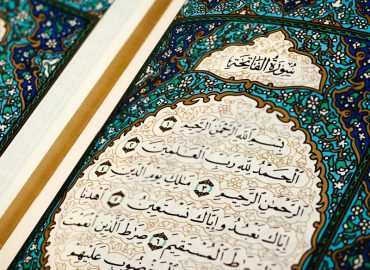 سُورَةُ الفَاتِحَةِ
بِسْمِ اللَّهِ الرَّحْمَٰنِ الرَّحِيمِ ١
الْحَمْدُ لِلَّهِ رَبِّ الْعَالَمِينَ ٢
الرَّحْمَٰنِ الرَّحِيمِ ٣ مَالِكِ يَوْمِ الدِّينِ ٤
إِيَّاكَ نَعْبُدُ وَإِيَّاكَ نَسْتَعِينُ ٥ اهْدِنَا
الصِّرَاطَ الْمُسْتَقِيمَ ٦ صِرَاطَ الَّذِينَ أَنْعَمْتَ
عَلَيْهِمْ